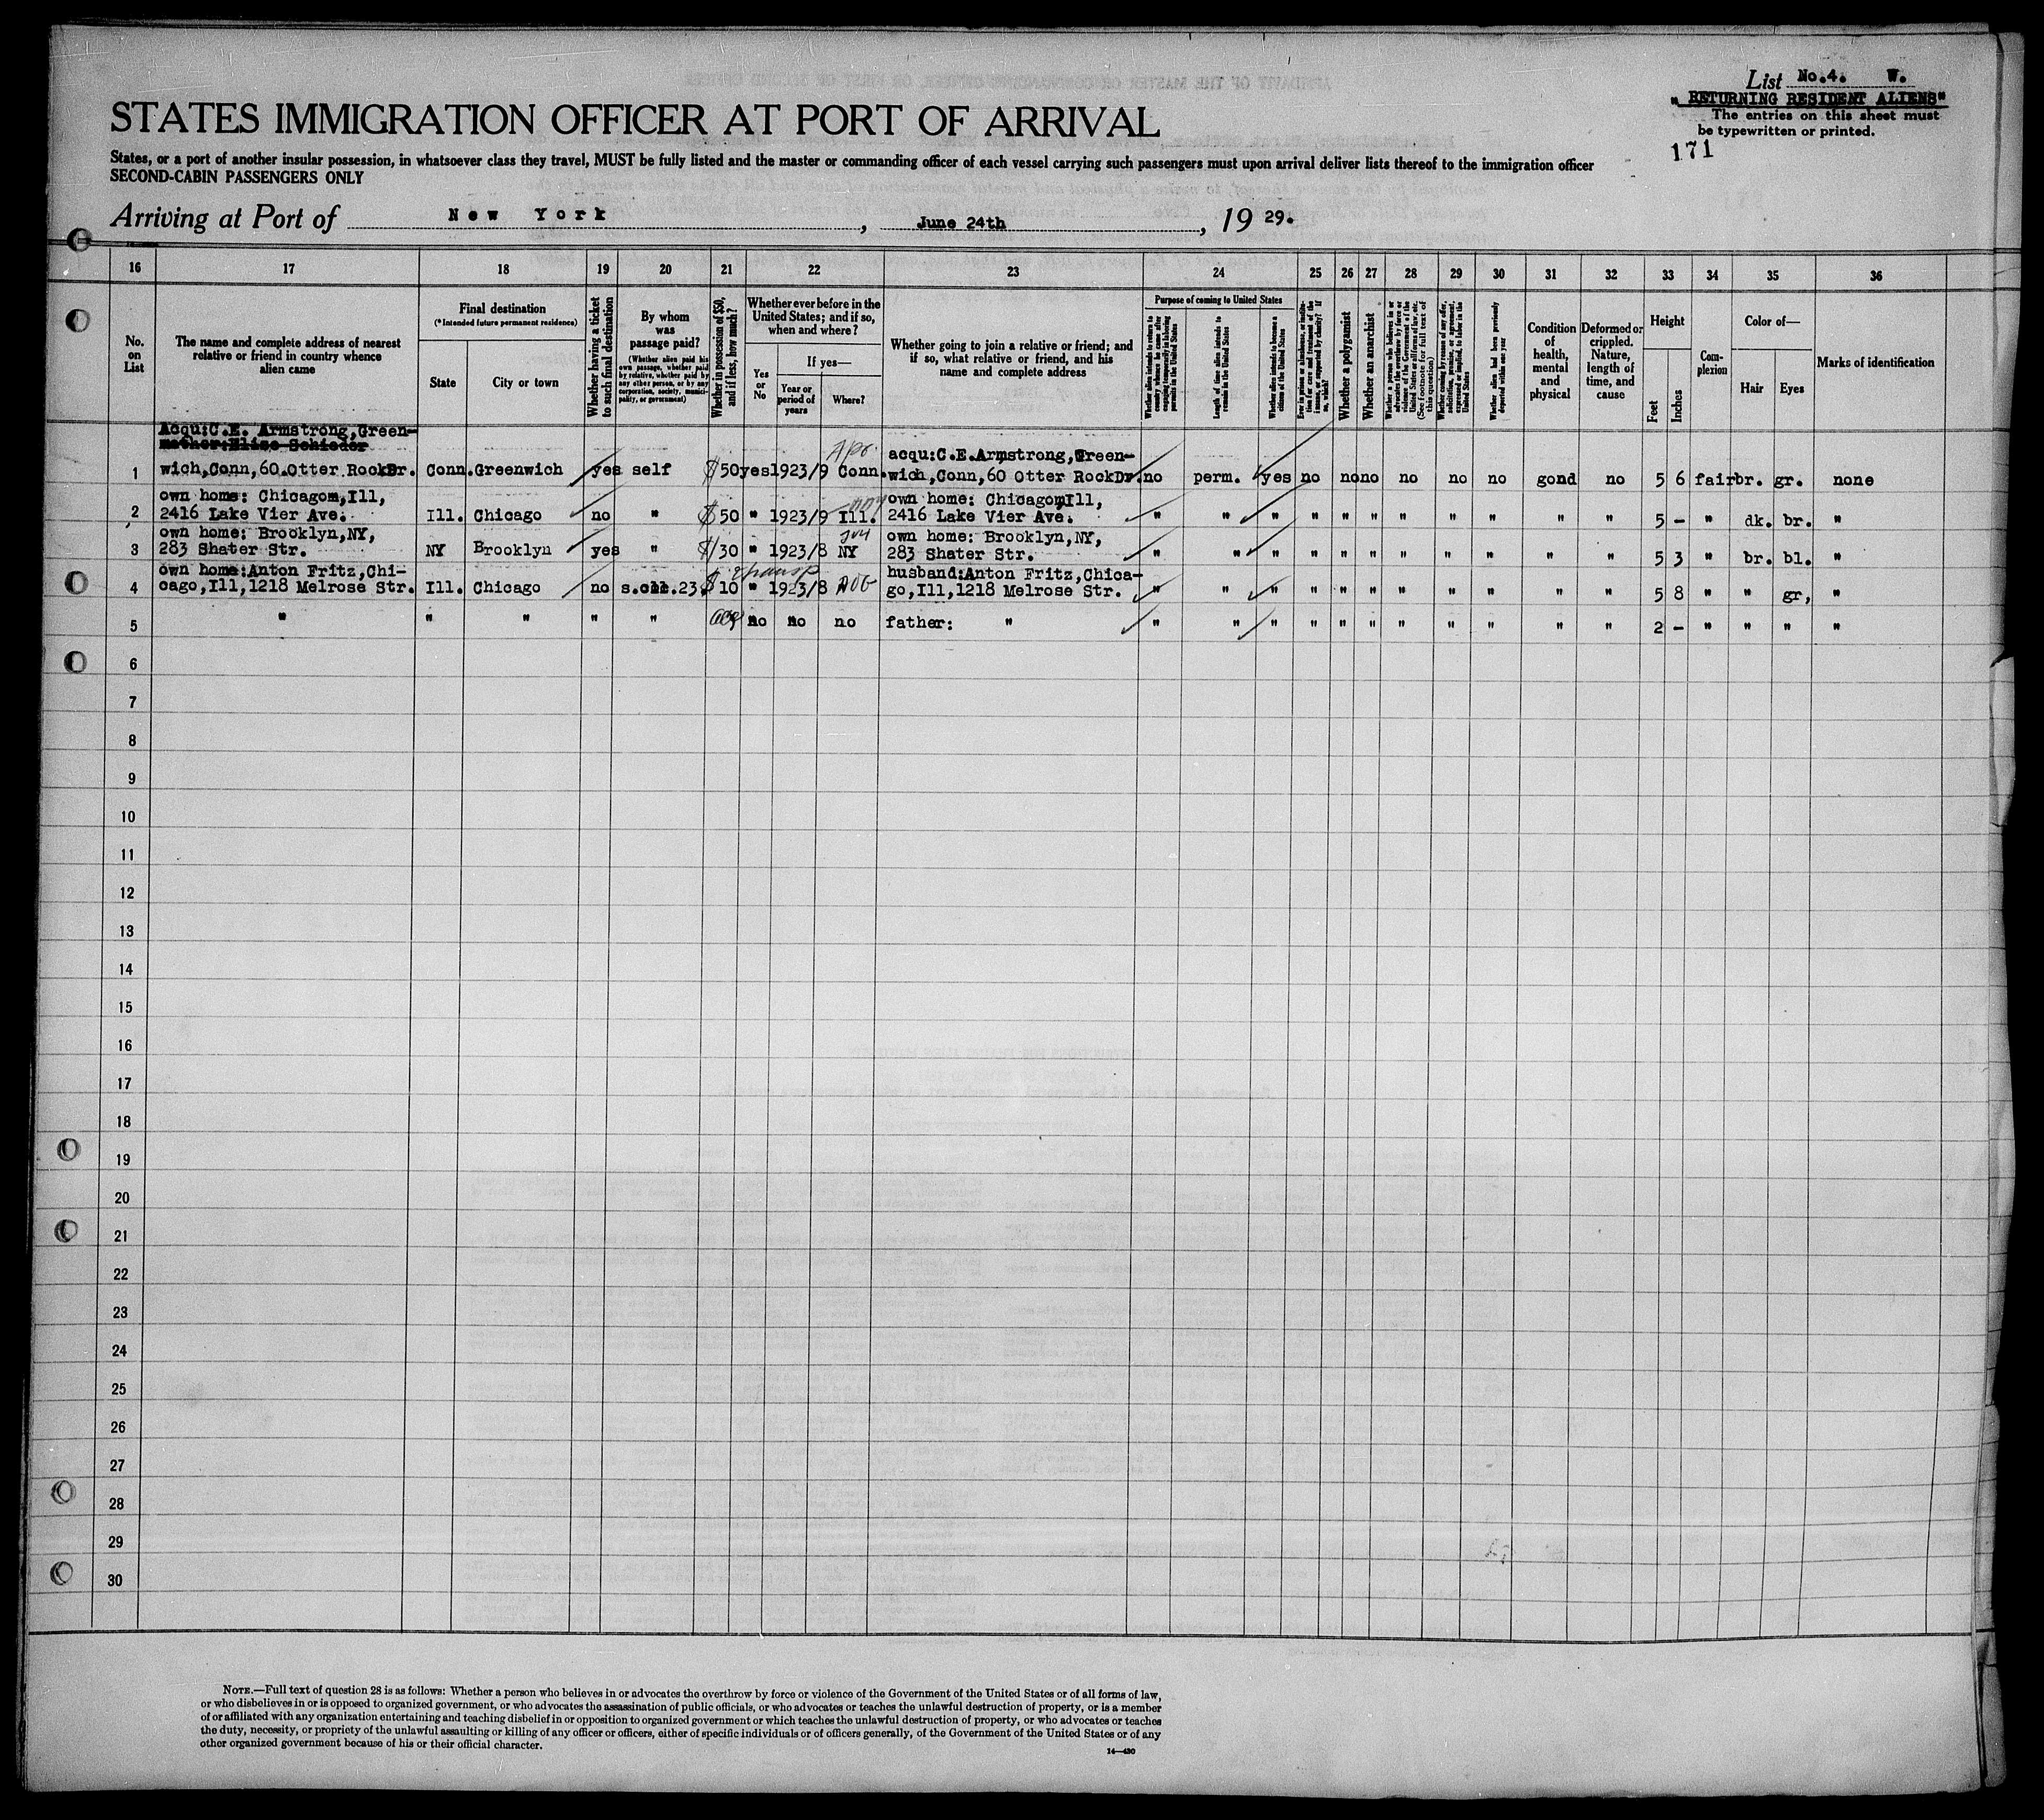 List No.4. W.
" RETURNING RESIDENT ALIENS"
The entries on this sheet must
be typewritten or printed.
171
STATES IMMIGRATION OFFICER AT PORT OF ARRIVAL
States, or a port of another insular possession, in whatsoever class they travel, MUST be fully listed and the master or commanding officer of each vessel carrying such passengers must upon arrival deliver lists thereof to the immigration officer
SECOND-CABIN PASSENGERS ONLY
Arriving at Port of New York, June 24th, 19 29.
16 17 18 19 20 21 22 23 24 25 26 27 28 29 30 31 32 33 34 35 36
No. on List
The name and complete address of nearest
relative or friend in country whence
alien came
Final destination
(*Intended future permanent residence)
State
City or town
Whether having a ticket
to such final destination
By whom
was
passage paid?
(Whether alien paid his
own passage, whether paid
by relative, whether paid by
any other person, or by any
corporation, society, munici-
pality, or government)
Whether in possession of $50,
and if less, how much?
Whether ever before in the
United States; and if so,
when and where?
Yes or No
If yes—
Year or
period of
years
Where?
Whether going to join a relative or friend; and
if so, what relative or friend, and his
name and complete address
Purpose of coming to United States
Whether alien intends to return to
country whence he came after
engaging temporarily in laboring
pursuits in the United States
Length of time alien intends to
remain in the United States
Whether alien intends to become a
citizen of the United States
Ever in prison or almshouse, or institu-
tion for care and treatment of the
insane, or supported by charity? If
so, which?
Whether a polygamist
Whether an anarchist
Whether a person who believes in or
advocates the overthrow by force or
violence of the Government of the
United States or all forms of law, etc.
(See footnote for full text of
this question)
Whether coming by reason of any offer,
solicitation, promise, or agreement,
expressed or implied, to labor in the
United States
Whether alien had been previously
deported within one year
Condition
of
health,
mental
and
physical
Deformed or
crippled.
Nature,
length of
time, and
cause
Height
Feet
Inches
Com-
plexion
Color of—
Hair
Eyes
Marks of identification
Acqu:C.E. Armstrong,Green-
mother:Elise Schieder
acqu:C.E.Armstrong,Green-
1 wich,Conn,60.Otter RockDr. Conn. Greenwich yes self $50 yes 1923/9 Conn. wich,Conn,60 Otter RockDr. no perm. yes no no no no no no gond no 5 6 fair br. gr. none
own home: Chicagom,Ill, own home: Chicagom,Ill,
2 2416 Lake Vier Ave. Ill. Chicago no " $50 " 1923/9 Ill. 2416 Lake Vier Ave. " " " " " " " " " " " 5 - " dk. br. "
own home: Brooklyn,NY, own home: Brooklyn,NY,
3 283 Shater Str. NY Brooklyn yes " $30 " 1923/8 NY 283 Shater Str. " " " " " " " " " " " 5 3 " br. bl. "
own home:Anton Fritz,Chi- husband:Anton Fritz,Chica-
4 cago,Ill,1218 Melrose Str. Ill. Chicago no $10 " 1923/8 go,Ill,1218 Melrose Str. " " " " " " " " " " " 5 8 " " gr, "
5 " " " " " no no no father: " " " " " " " " " " " " 2 - " " " "
6
7
8
9
10
11
12
13
14
15
16
17
18
19
20
21
22
23
24
25
26
27
28
29
30
NOTE.—Full text of question 28 is as follows: Whether a person who believes in or advocates the overthrow by force or violence of the Government of the United States or of all forms of law,
or who disbelieves in or is opposed to organized government, or who advocates the assassination of public officials, or who advocates or teaches the unlawful destruction of property, or is a member
of or affiliated with any organization entertaining and teaching disbelief in or opposition to organized government or which teaches the unlawful destruction of property, or who advocates or teaches
the duty, necessity, or propriety of the unlawful assaulting or killing of any officer or officers, either of specific individuals or of officers generally, of the Government of the United States or of any
other organized government because of his or their official character.
14—430